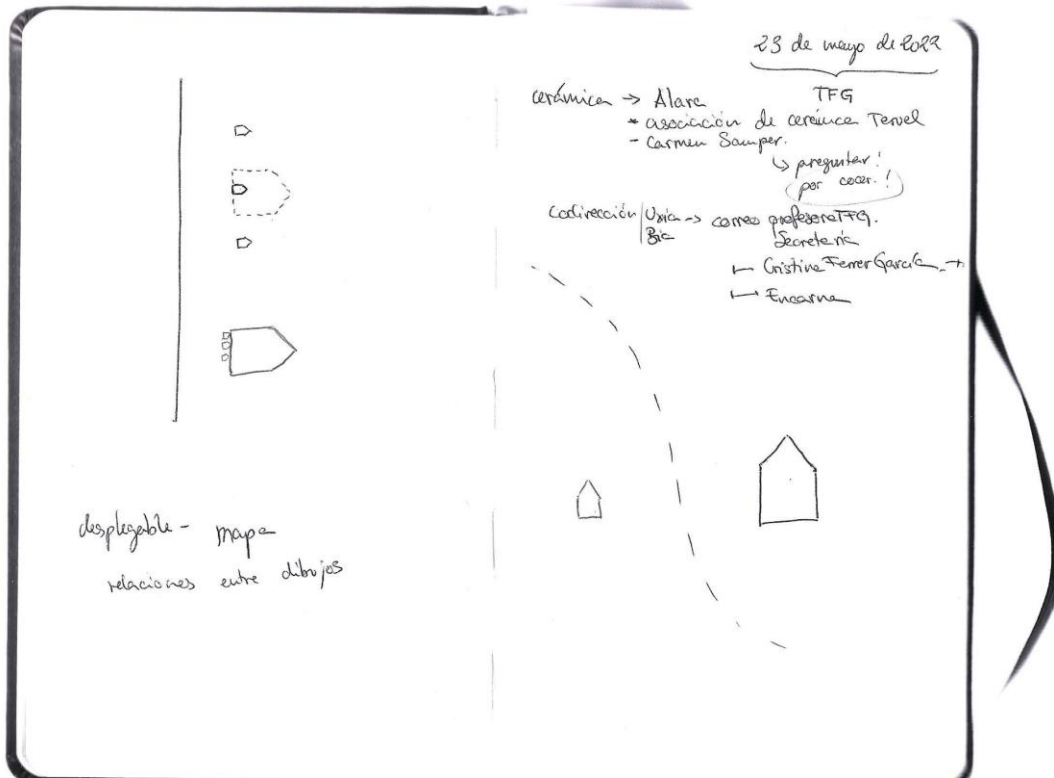 desplegable - mapa
relaciones entre dibujos
23 de mayo de 2022
TFG
cerámica → Alara
* asociación de cerámica Teruel
- Carmen Samper.
↳ preguntar!
por cocer.!
Codirección → correo profesora TFG.
Secretaría
Cristina Ferrer García →
Encarna